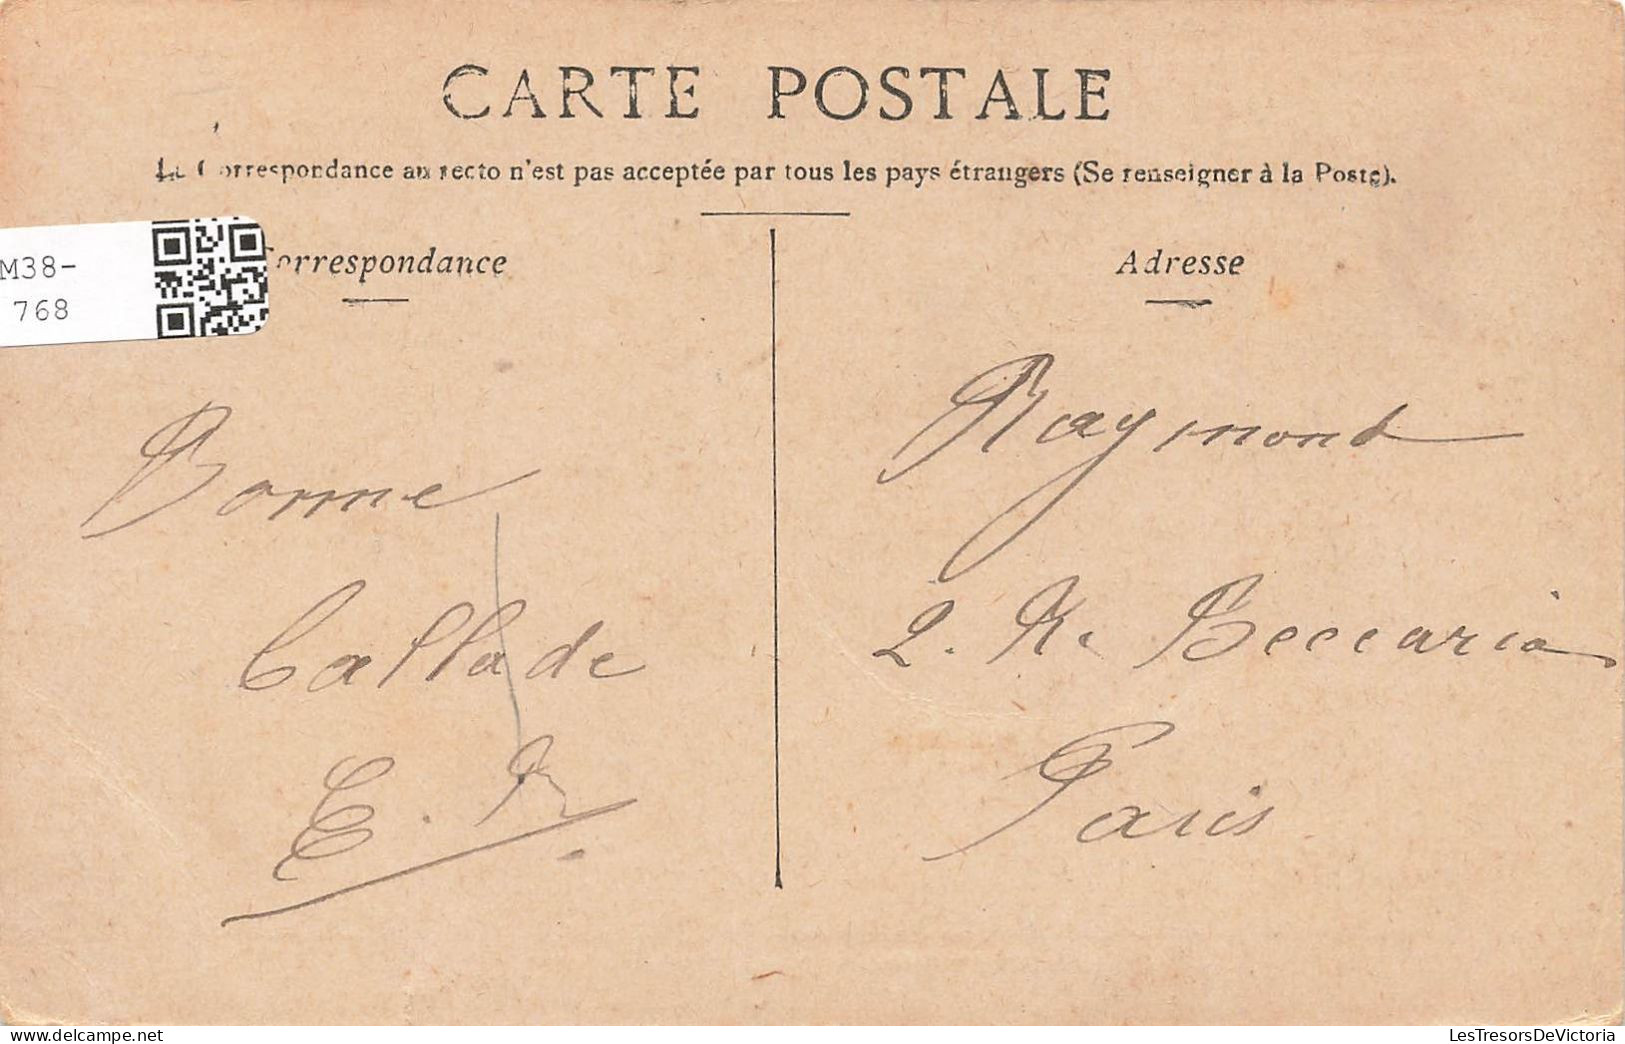 CARTE POSTALE
La Correspondance au recto n'est pas acceptée par tous les pays étrangers (Se renseigner à la Poste).
M38-
768
Correspondance
Adresse
Bonne
Ballade
E. R.
Raymond
2. R. Beccaria
Paris
LesTresorsDeVictoria